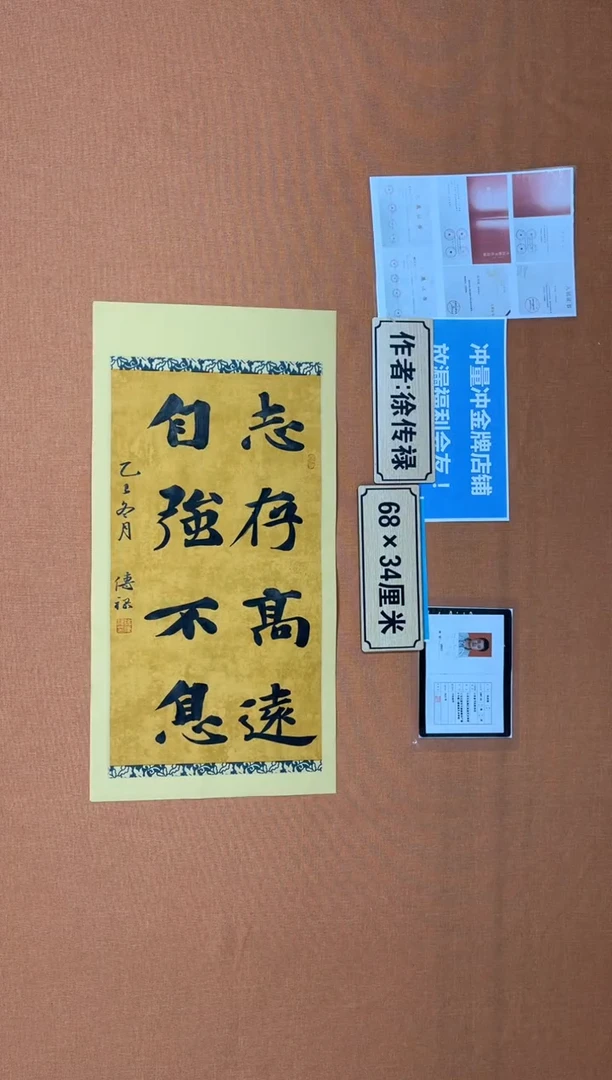 志存高遠
自強不息
乙巳冬月 傳祿
作者:徐传禄
68×34厘米
冲量冲金牌店铺
放漏福利会友!